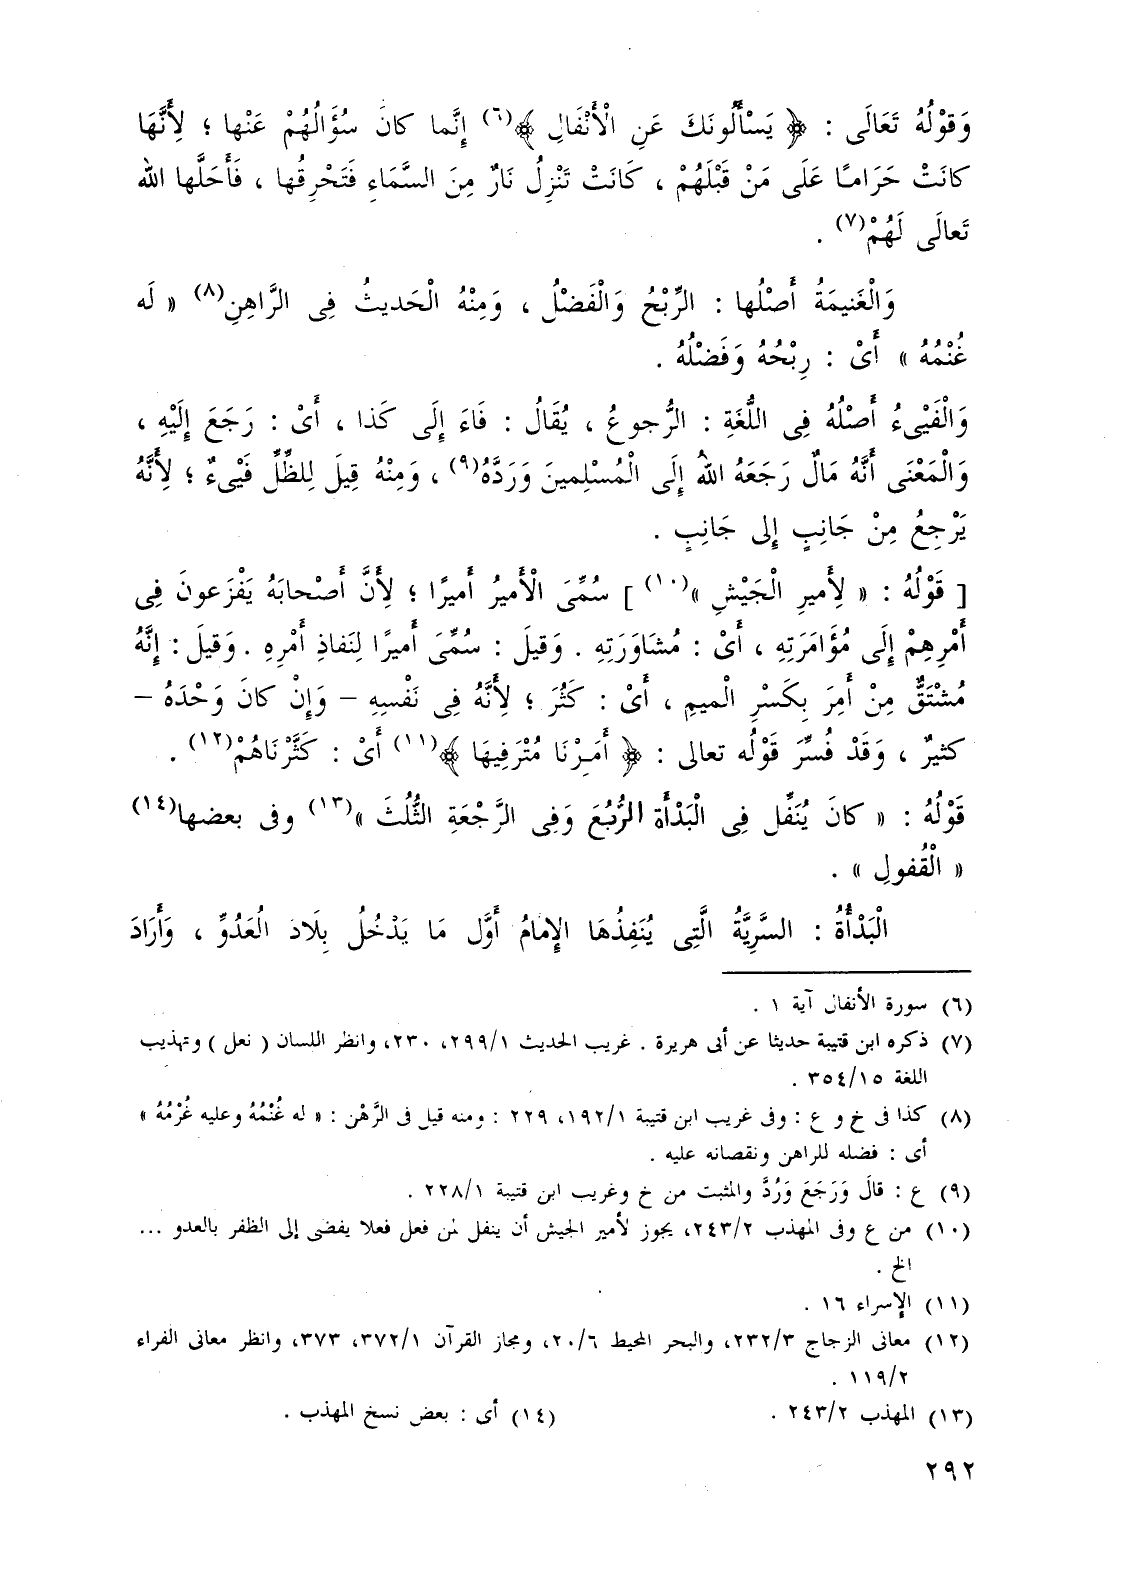 وَقَوْلُهُ تَعَالَى : ﴿ يَسْأَلُونَكَ عَنِ الْأَنْفَالِ ﴾(٦) إِنَّما كانَ سُؤَالُهُمْ عَنْها ؛ لِأَنَّهَا
كانَتْ حَرَامـًا عَلَى مَنْ قَبْلَهُمْ ، كَانَتْ تَنْزِلُ نَارٌ مِنَ السَّمَاءِ فَتَحْرِقُها ، فَأَحَلَّها اللّٰه
تَعالَى لَهُمْ(٧) .
وَالْغَنيمَةُ أَصْلُها : الرِّبْحُ وَالْفَضْلُ ، وَمِنْهُ الْحَديثُ فِى الرَّاهِنِ(٨) « لَه
غُنْمُهُ » أَىْ : رِبْحُهُ وَفَضْلُهُ .
وَالْفَيْىءُ أَصْلُهُ فِى اللُّغَةِ : الرُّجوعُ ، يُقَالُ : فَاءَ إِلَى كَذا ، أَىْ : رَجَعَ إِلَيْهِ ،
وَالْمَعْنَى أَنَّهُ مَالٌ رَجَعَهُ اللّٰهُ إِلَى الْمُسْلِمينَ وَرَدَّهُ(٩) ، وَمِنْهُ قِيلَ لِلظِّلِّ فَيْىءٌ ؛ لِأَنَّهُ
يَرْجِعُ مِنْ جَانِبٍ إِلى جَانِبٍ .
[ قَوْلُهُ : « لِأَميرِ الْجَيْشِ »(١٠) ] سُمِّىَ الْأَميرُ أَميرًا ؛ لِأَنَّ أَصْحابَهُ يَفْزَعونَ فِى
أَمْرِهِمْ إِلَى مُؤَامَرَتِهِ ، أَىْ : مُشَاوَرَتِهِ . وَقيلَ : سُمِّىَ أَميرًا لِنَفاذِ أَمْرِهِ . وَقيلَ : إِنَّهُ
مُشْتَقٌّ مِنْ أَمِرَ بِكَسْرِ الْميمِ ، أَىْ : كَثُرَ ؛ لِأَنَّهُ فِى نَفْسِهِ – وَإِنْ كانَ وَحْدَهُ –
كثيرٌ ، وَقَدْ فُسِّرَ قَوْلُه تعالى : ﴿ أَمَـِرْنَا مُتْرَفِيهَا ﴾(١١) أَىْ : كَثَّرْنَاهُمْ(١٢) .
قَوْلُهُ : « كانَ يُنَفِّل فِى الْبَدْأَة الرُّبُعَ وَفِى الرَّجْعَةِ الثُّلُثَ »(١٣) وفى بعضها(١٤)
« الْقُفولِ » .
الْبَدْأَةُ : السَّرِيَّةُ الَّتِى يُنَفِذُهَا الإِمامُ أَوَّل مَا يَدْخُلُ بِلَادَ الْعَدُوِّ ، وَأَرَادَ
(٦) سورة الأنفال آية ١ .
(٧) ذكره ابن قتيبة حديثا عن أبى هريرة . غريب الحديث ٢٩٩/١، ٢٣٠، وانظر اللسان ( نعل ) وتهذيب
اللغة ٣٥٤/١٥ .
(٨) كذا فى خ و ع : وفى غريب ابن قتيبة ١٩٢/١، ٢٢٩ : ومنه قيل فى الرَّهْن : « له غُنْمُهُ وعليه غُرْمُهُ »
أى : فضله للراهن ونقصانه عليه .
(٩) ع : قالَ وَرَجَعَ وَرُدَّ والمثبت من خ وغريب ابن قتيبة ٢٢٨/١ .
(١٠) من ع وفى المهذب ٢٤٣/٢، يجوز لأمير الجيش أن ينفل لمن فعل فعلا يفضى إلى الظفر بالعدو ...
الخ .
(١١) الإسراء ١٦ .
(١٢) معانى الزجاج ٢٣٢/٣، والبحر المحيط ٢٠/٦، ومجاز القرآن ٣٧٢/١، ٣٧٣، وانظر معانى الفراء
١١٩/٢ .
(١٣) المهذب ٢٤٣/٢ . (١٤) أى : بعض نسخ المهذب .
٢٩٢